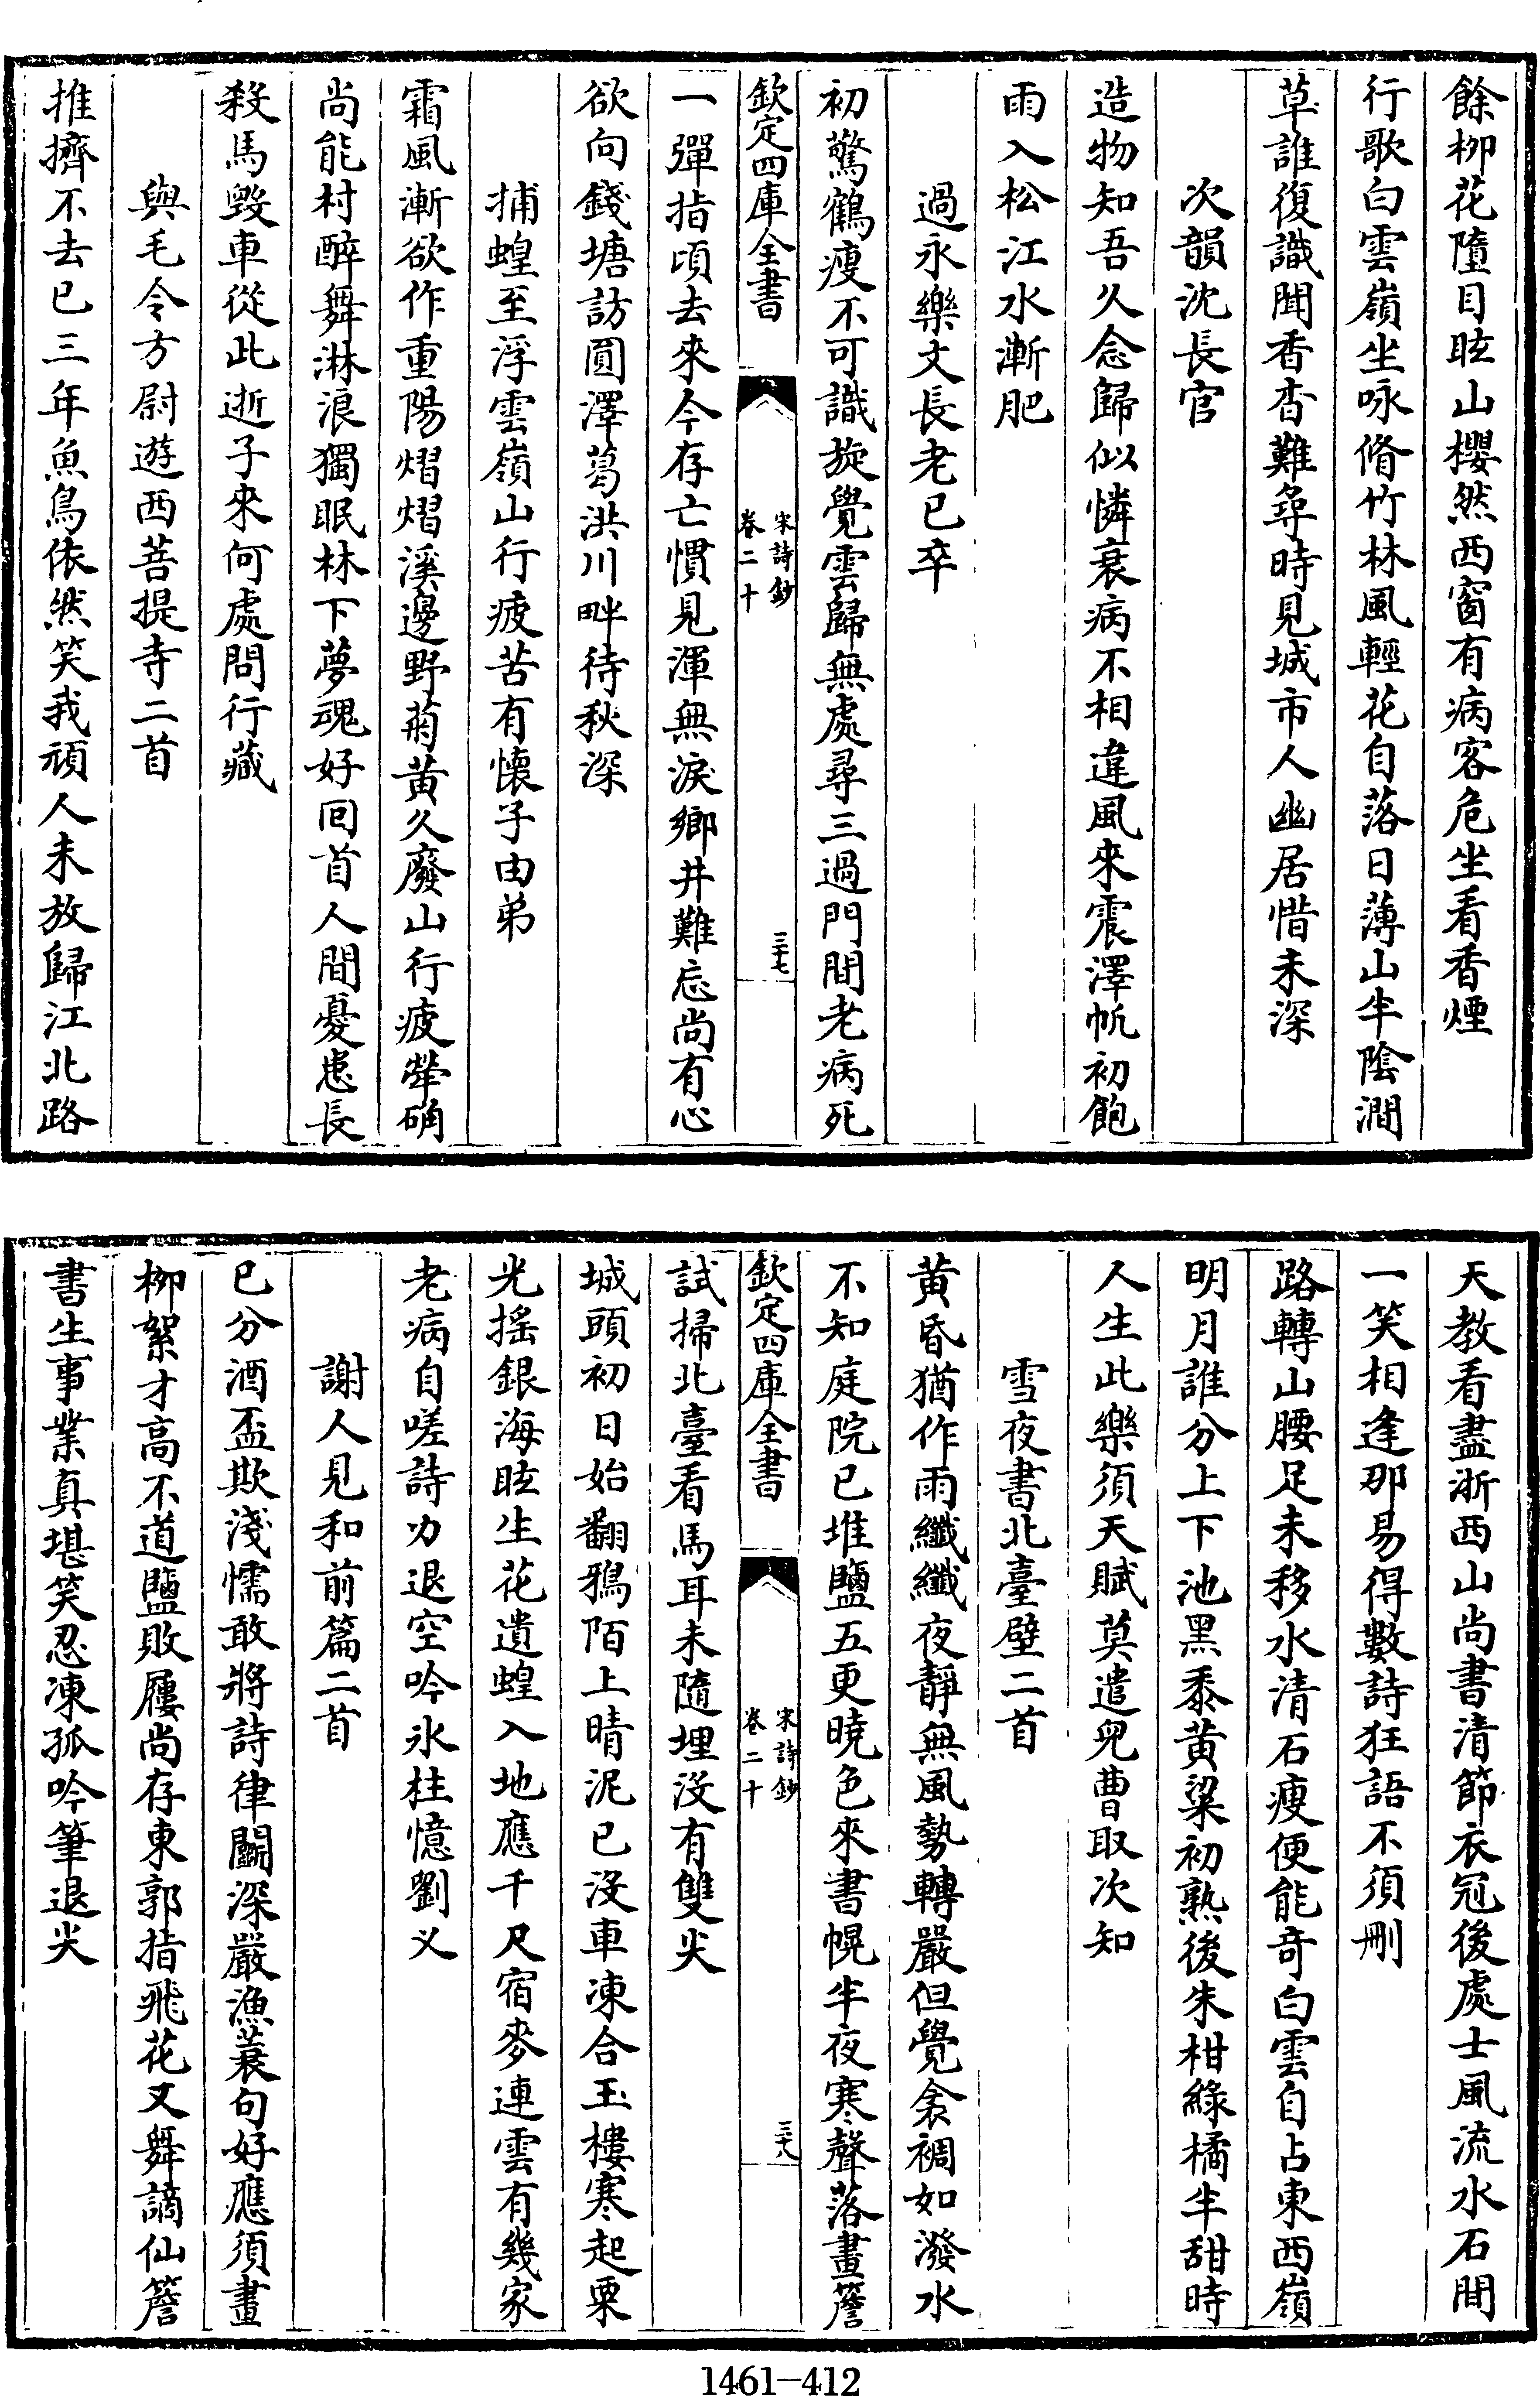 餘柳花墮目眩山櫻然西窗有病客危坐看香煙
行歌白雲嶺坐咏脩竹林風輕花自落日薄山半陰澗
草誰復識聞香杳難尋時見城市人幽居惜未深
次韻沈長官
造物知吾久念歸似憐衰病不相違風來震澤帆初飽
雨入松江水漸肥
過永樂文長老已卒
初驚鶴瘦不可識旋覺雲歸無處尋三過門間老病死
欽定四庫全書
宋詩鈔
卷二十
三十七
一彈指頃去來今存亡慣見渾無淚鄉井難忘尚有心
欲向錢塘訪圓澤葛洪川畔待秋深
捕蝗至浮雲嶺山行疲苦有懷子由弟
霜風漸欲作重陽熠熠溪邊野菊黃久廢山行疲犖确
尚能村醉舞淋浪獨眠林下夢魂好回首人間憂患長
殺馬毀車從此逝子來何處問行藏
與毛令方尉遊西菩提寺二首
推擠不去已三年魚鳥依然笑我頑人未放歸江北路
天教看盡浙西山尚書清節衣冠後處士風流水石間
一笑相逢那易得數詩狂語不須刪
路轉山腰足未移水清石瘦便能奇白雲自占東西嶺
明月誰分上下池黑黍黃粱初熟後朱柑綠橘半甜時
人生此樂須天賦莫遣兒曹取次知
雪夜書北臺壁二首
黃昏猶作雨纖纖夜靜無風勢轉嚴但覺衾裯如潑水
不知庭院已堆鹽五更曉色來書幌半夜寒聲落畫簷
欽定四庫全書
宋詩鈔
卷二十
三十八
試掃北臺看馬耳未隨埋沒有雙尖
城頭初日始翻鴉陌上晴泥已沒車凍合玉樓寒起粟
光搖銀海眩生花遺蝗入地應千尺宿麥連雲有幾家
老病自嗟詩力退空吟冰柱憶劉义
謝人見和前篇二首
已分酒盃欺淺懦敢將詩律鬭深嚴漁蓑句好應須畫
柳絮才高不道鹽敗屨尚存東郭指飛花又舞謫仙簷
書生事業真堪笑忍凍孤吟筆退尖
1461-412